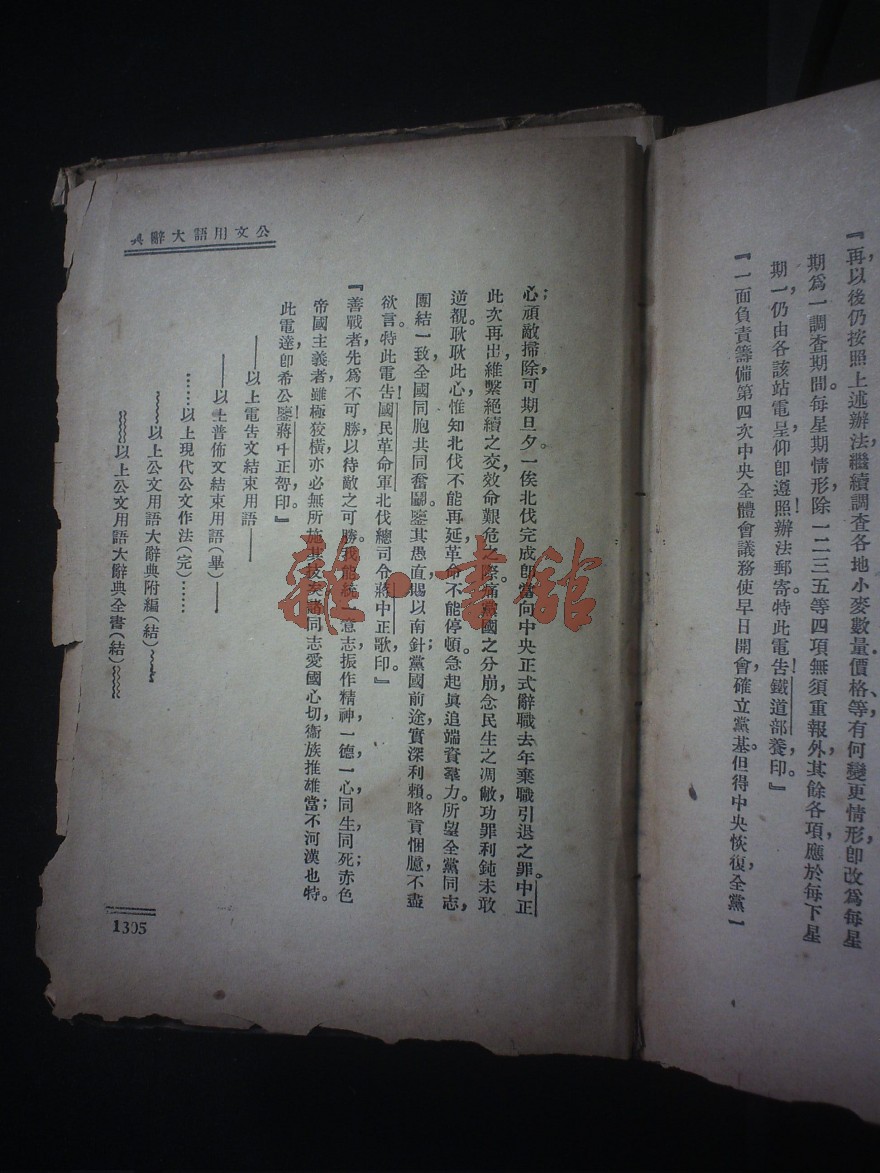 『再以後仍按照上述辦法繼續調查各地小麥數量、價格等有何變更情形，卽改爲每星
期爲一調查期間。每星期情形除一二三五等四項無須重報外，其餘各項應於每下星
期一，仍由各該站電呈。仰卽遵照辦法郵寄。特此電告！鐵道部養，印。』
『一面負責籌備第四次中央全體會議，務使早日開會，確立黨基。但得中央恢復，全黨一
公文用語大辭典
心；頑敵掃除，可期旦夕。一俟北伐完成，卽當向中央正式辭職，去年棄職引退之罪。中正
此次再出，維繫絕續之交，效命艱危之際。痛黨國之分崩，念民生之凋敝，功罪利鈍，未敢
逆覩。耿耿此心，惟知北伐不能再延，革命不能停頓。急起眞追，端資羣力。所望全黨同志，
團結一致，全國同胞，共同奮鬭。鑒其愚直，賜以南針；黨國前途，實深利賴。略貢悃臆，不盡
欲言。特此電告！國民革命軍北伐總司令蔣中正歌，印。』
『善戰者，先爲不可勝，以待敵之可勝。我能統一意志，振作精神，一德一心，同生同死；赤色
帝國主義者，雖極狡橫，亦必無所施其技矣。諸同志愛國心切，衞族推雄；當不河漢也。特
此電達，卽希公鑒！蔣中正。印』
——以上電告文結束用語——
——以上普佈文結束用語(畢)——
……以上現代公文作法(完)……
～～～以上公文用語大辭典附編(結)～～～
～～～以上公文用語大辭典全書(結)～～～
1305
雜·書館